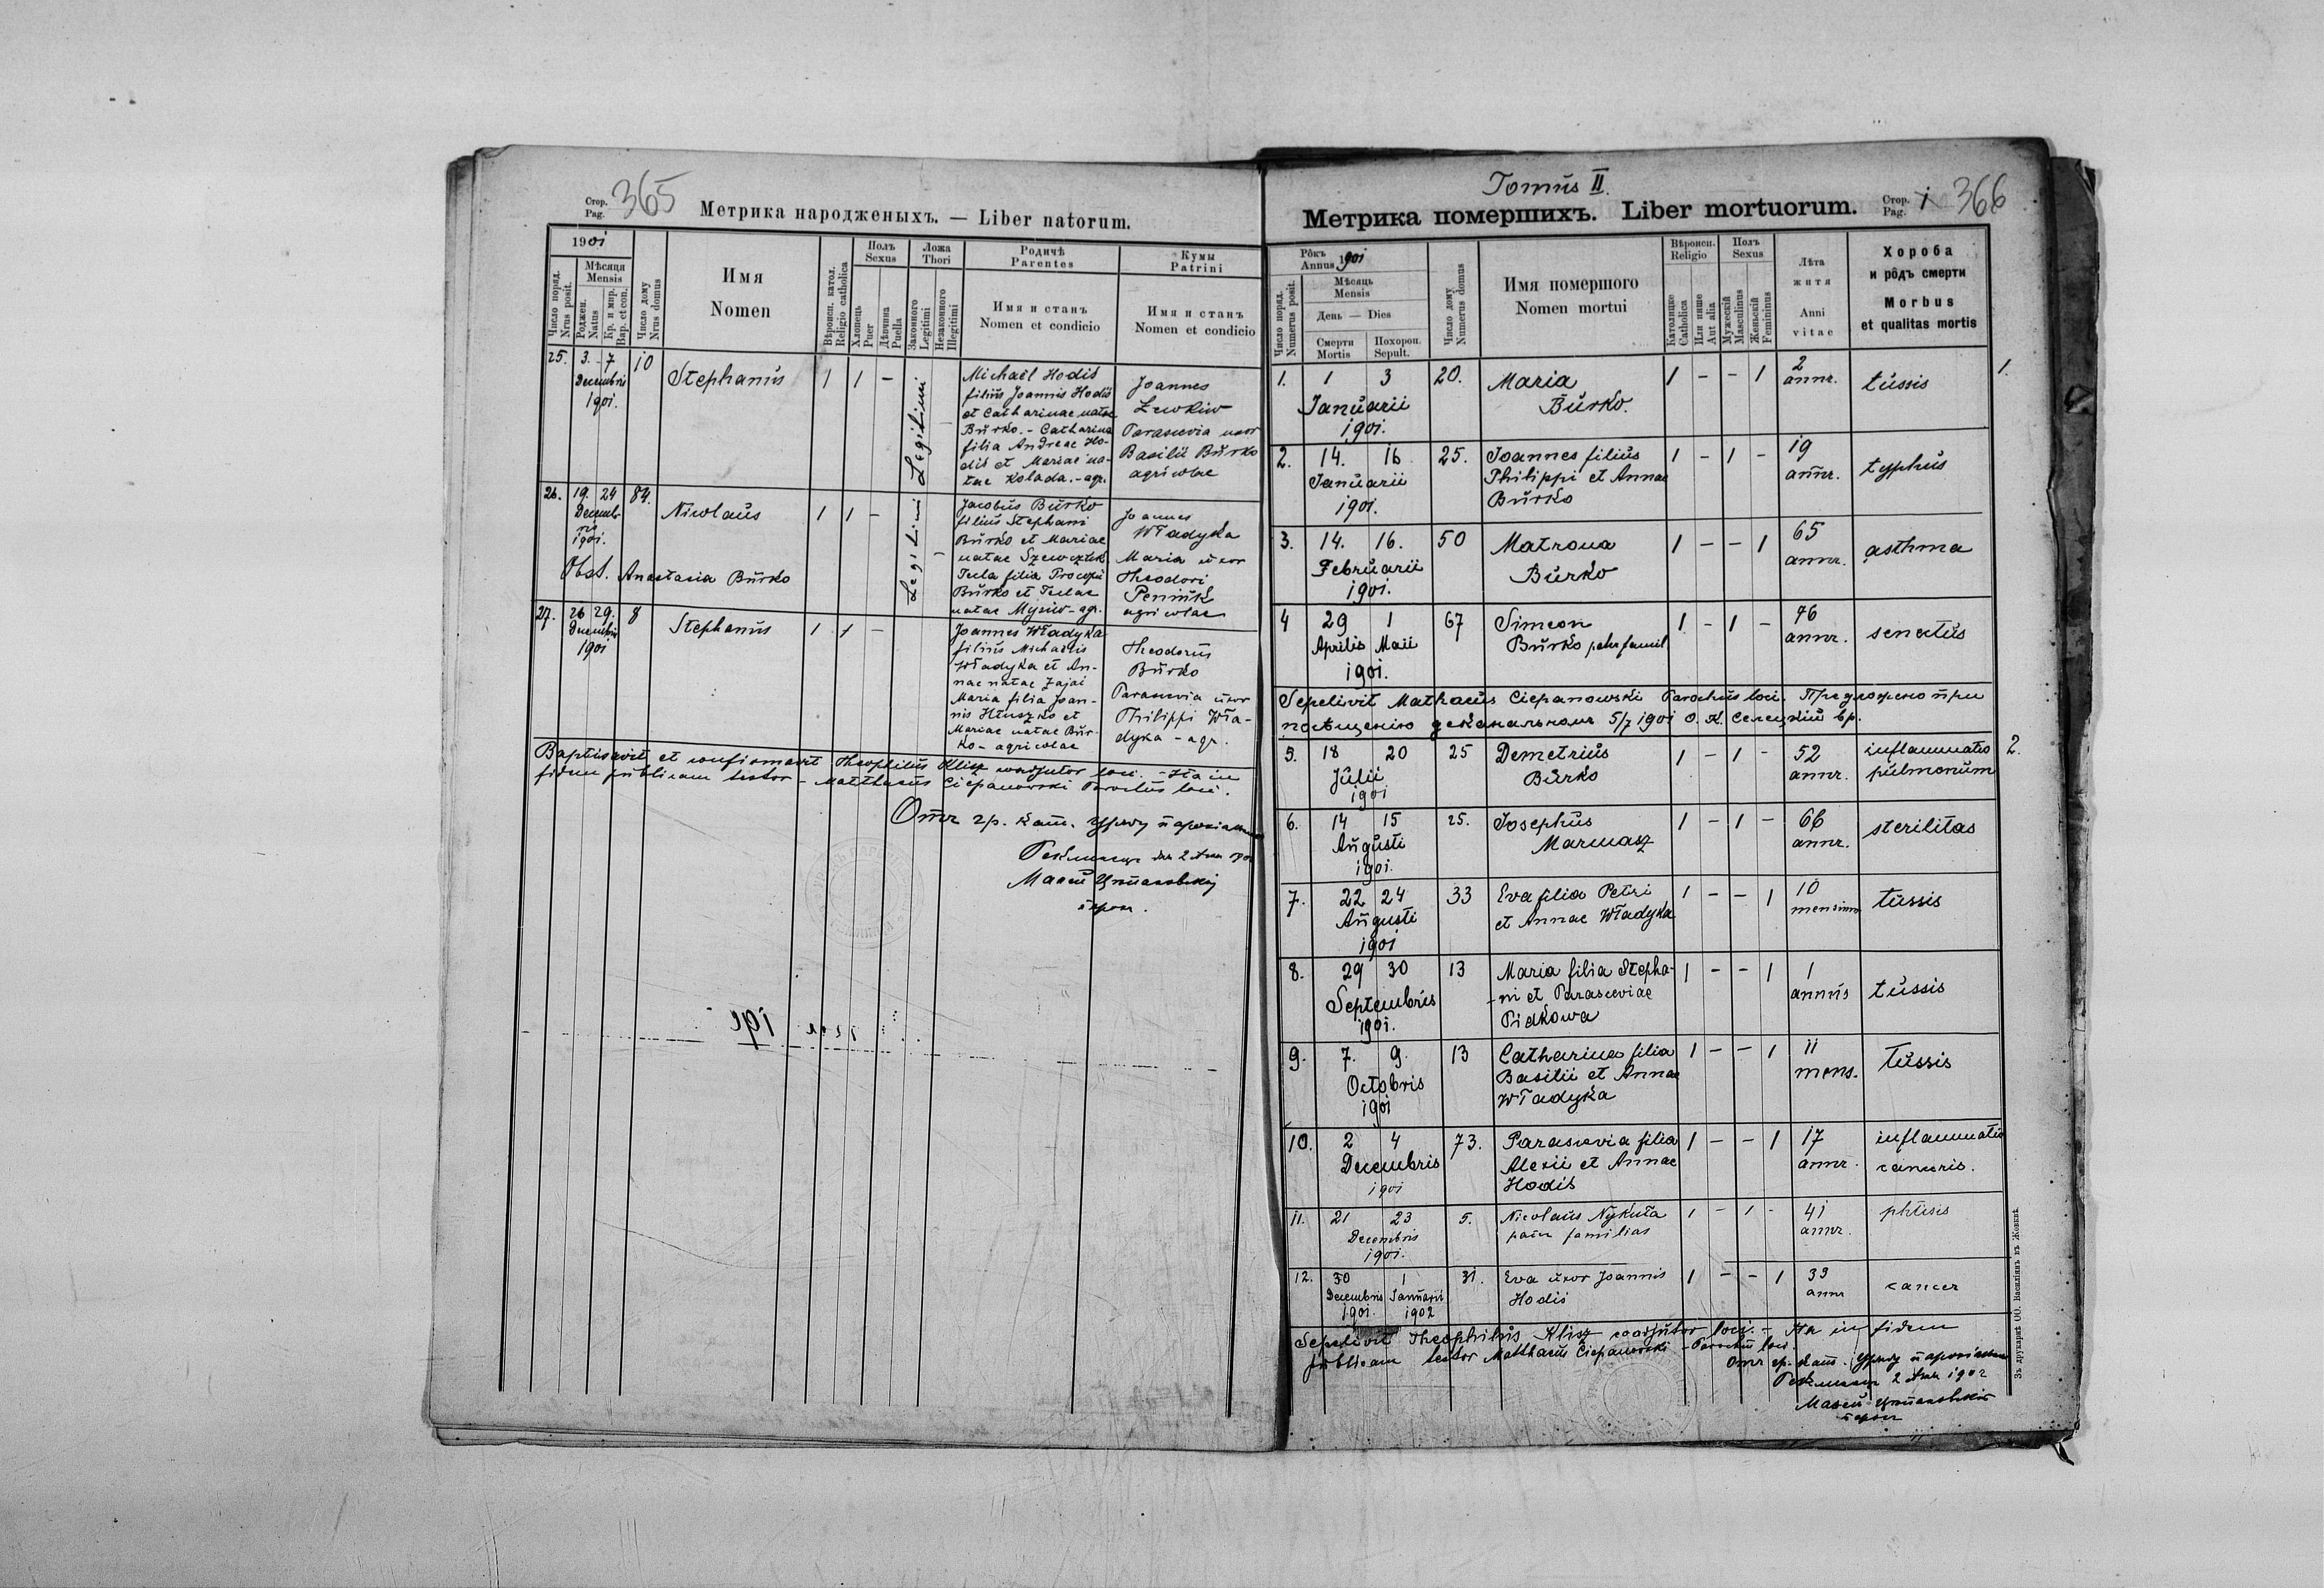 Стор.
Pag.
365
Метрика народженыхъ. — Liber natorum.
1901
Число поряд.
Nrus posit.
Мѣсяця
Mensis
Роджен.
Natus
Кр. и мир.
Bap. et con.
Число дому
Nrus domus
Имя
Nomen
Вѣроисп. катол.
Religio catholica
Полъ
Sexus
Хлопець
Puer
Дѣвчина
Puella
Ложа
Thori
Законного
Legitimi
Незаконного
Illegitimi
Родичѣ
Parentes
Имя и станъ
Nomen et condicio
Кумы
Patrini
Имя и станъ
Nomen et condicio
25. 3. - 7 10 Stephanus 1 1 - Legitimi
Decembris
1901.
Michaël Hodis
filius Joannis Hodis
et Catharinae natae
Burko. - Catharina
filia Andreae Ho-
dis et Mariae na-
tae Kolada. - agr.
Joannes
Lewkiw
Parascevia uxor
Basilii Burko
agricolae
26. 19. 24 84. Nicolaus 1 1 - Legitimi -
Decemb-
ris
1901.
Obst. Anastasia Burko
Jacobus Burko
filius Stephani
Burko et Mariae
natae Szewcztek
Tecla filia Procopii
Burko et Teclae
natae Mysiw - agr.
Joannes
Władyka
Maria uxor
Theodori
agricolae
27. 26 29. 8 Stephanus 1 1 -
Decembris
1901
Joannes Władyka
filius Michaëlis
Władyka et An-
nae natae Zajać
Maria filia Joan-
nis Hłuszko et
Mariae natae Bur-
ko - agricolae
Theodorus
Burko
Parascevia uxor
Philippi Wła-
dyka - agr.
Baptisavit et confirmavit Theophilus Klisz coadjutor loci. - Ita in
fidem publicam testor - Matthaeus Ciepanowski Parochus loci.
Отъ гр. кат. уряду
2 1902
Матей
Tomus II.
Метрика помершихъ. Liber mortuorum.
Стор.
Pag.
1 366
Рôкъ
Annus 1901
Число поряд.
Numerus posit.
Мѣсяць
Mensis
День — Dies
Смерти
Mortis
Похорон.
Sepult.
Число дому
Numerus domus
Имя помершого
Nomen mortui
Вѣроисп.
Religio
Католицке
Catholica
Или инше
Aut alia
Полъ
Sexus
Мужескій
Masculinus
Женьскій
Femininus
Лѣта
житя
Anni
vitae
Хороба
и рôдъ смерти
Morbus
et qualitas mortis
1. 1 3 20. Maria 1 - - 1 2 tussis 1.
Januarii Burko. annr.
1901.
2. 14. 16 25. Joannes filius 1 - 1 - 19 typhus
Januarii Philippi et Annae annr.
1901. Burko
3. 14. 16. 50 Matrona 1 - - 1 65 asthma
Februarii Burko annr.
1901.
4 29 1 67 Simeon 1 - 1 - 76 senectus
Aprilis Maii Burko pater famil. annr.
1901.
Sepelivit Mathaeus Ciepanowski Parochus loci. Предложено при
посѣщенію деканальномъ 5/7 1901 О. К. Селецкій вр.
5. 18 20 25 Demetrius 1 - 1 - 52 inflammatio 2.
Julii Burko annr. pulmonum
1901
6. 14 15 25. Josephus 1 - 1 - 66 sterilitas
Augusti Marmasz annr.
1901.
7. 22 24 33 Eva filia Petri 1 - - 1 10 tussis
Augusti et Annae Władyka mensium
1901
8. 29 30 13 Maria filia Stepha- 1 - - 1 1 tussis
Septembris -ni et Parasceviae annus
1901. Pidkowa
9. 7. 9. 13 Catharina filia 1 - - 1 11 tussis
Octobris Basilii et Annae mens.
1901 Władyka
10. 2 4 73. Parascevia filia 1 - - 1 17 inflammatio
Decembris Alexii et Annae annr.
1901 Hodis
11. 21 23 5. Nicolaus Nykuta 1 - 1 - 41 phtisis
Decembris pater familias annr.
1901.
12. 30 1 31. Eva uxor Joannis 1 - - 1 33 cancer
Decembris Januarii Hodis annr
1901. 1902
Sepelivit Theophilus Klisz coadjutor loci. - Ita in fidem
publicam testor Matthaeus Ciepanowski - Parochus loci.
Отъ гр. кат. уряду
2 1902
Матей
Зъ друкарнѣ ОО. Василіянъ въ Жовквѣ.